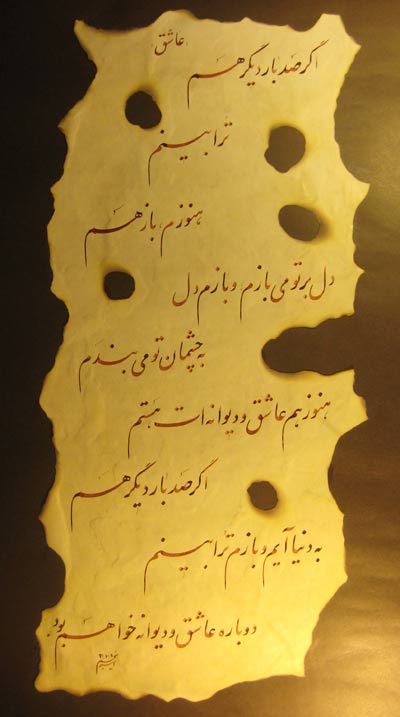 عاشق
اگر صد بار دیگر هم
ترا بینم
هنوزم، باز هم
دل بر تو می بازم و بازم دل
به چشمان تو می بندم
هنوز هم عاشق و دیوانه ات هستم
اگر صد بار دیگر هم
به دنیا آیم و بازم ترا بینم
دوباره عاشق و دیوانه خواهم بود